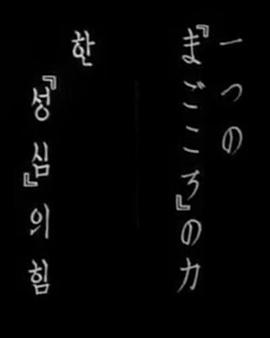 一つの
『まごころ』の力
한
『성심』의 힘